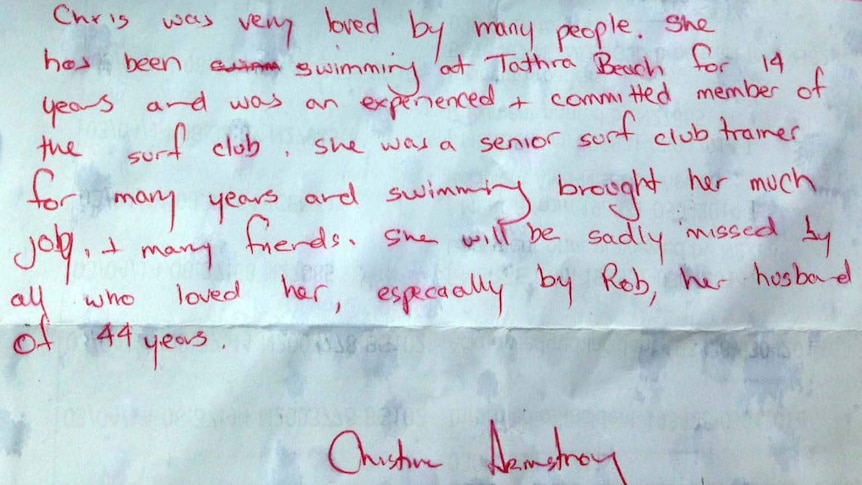 Chris was very loved by many people. She
has been swimm swimming at Tathra Beach for 14
years and was an experienced + committed member of
the surf club. She was a senior surf club trainer
for many years and swimming brought her much
joy, + many friends. She will be sadly missed by
all who loved her, especaally by Rob, her husband
of 44 years.
Christine Armstrong